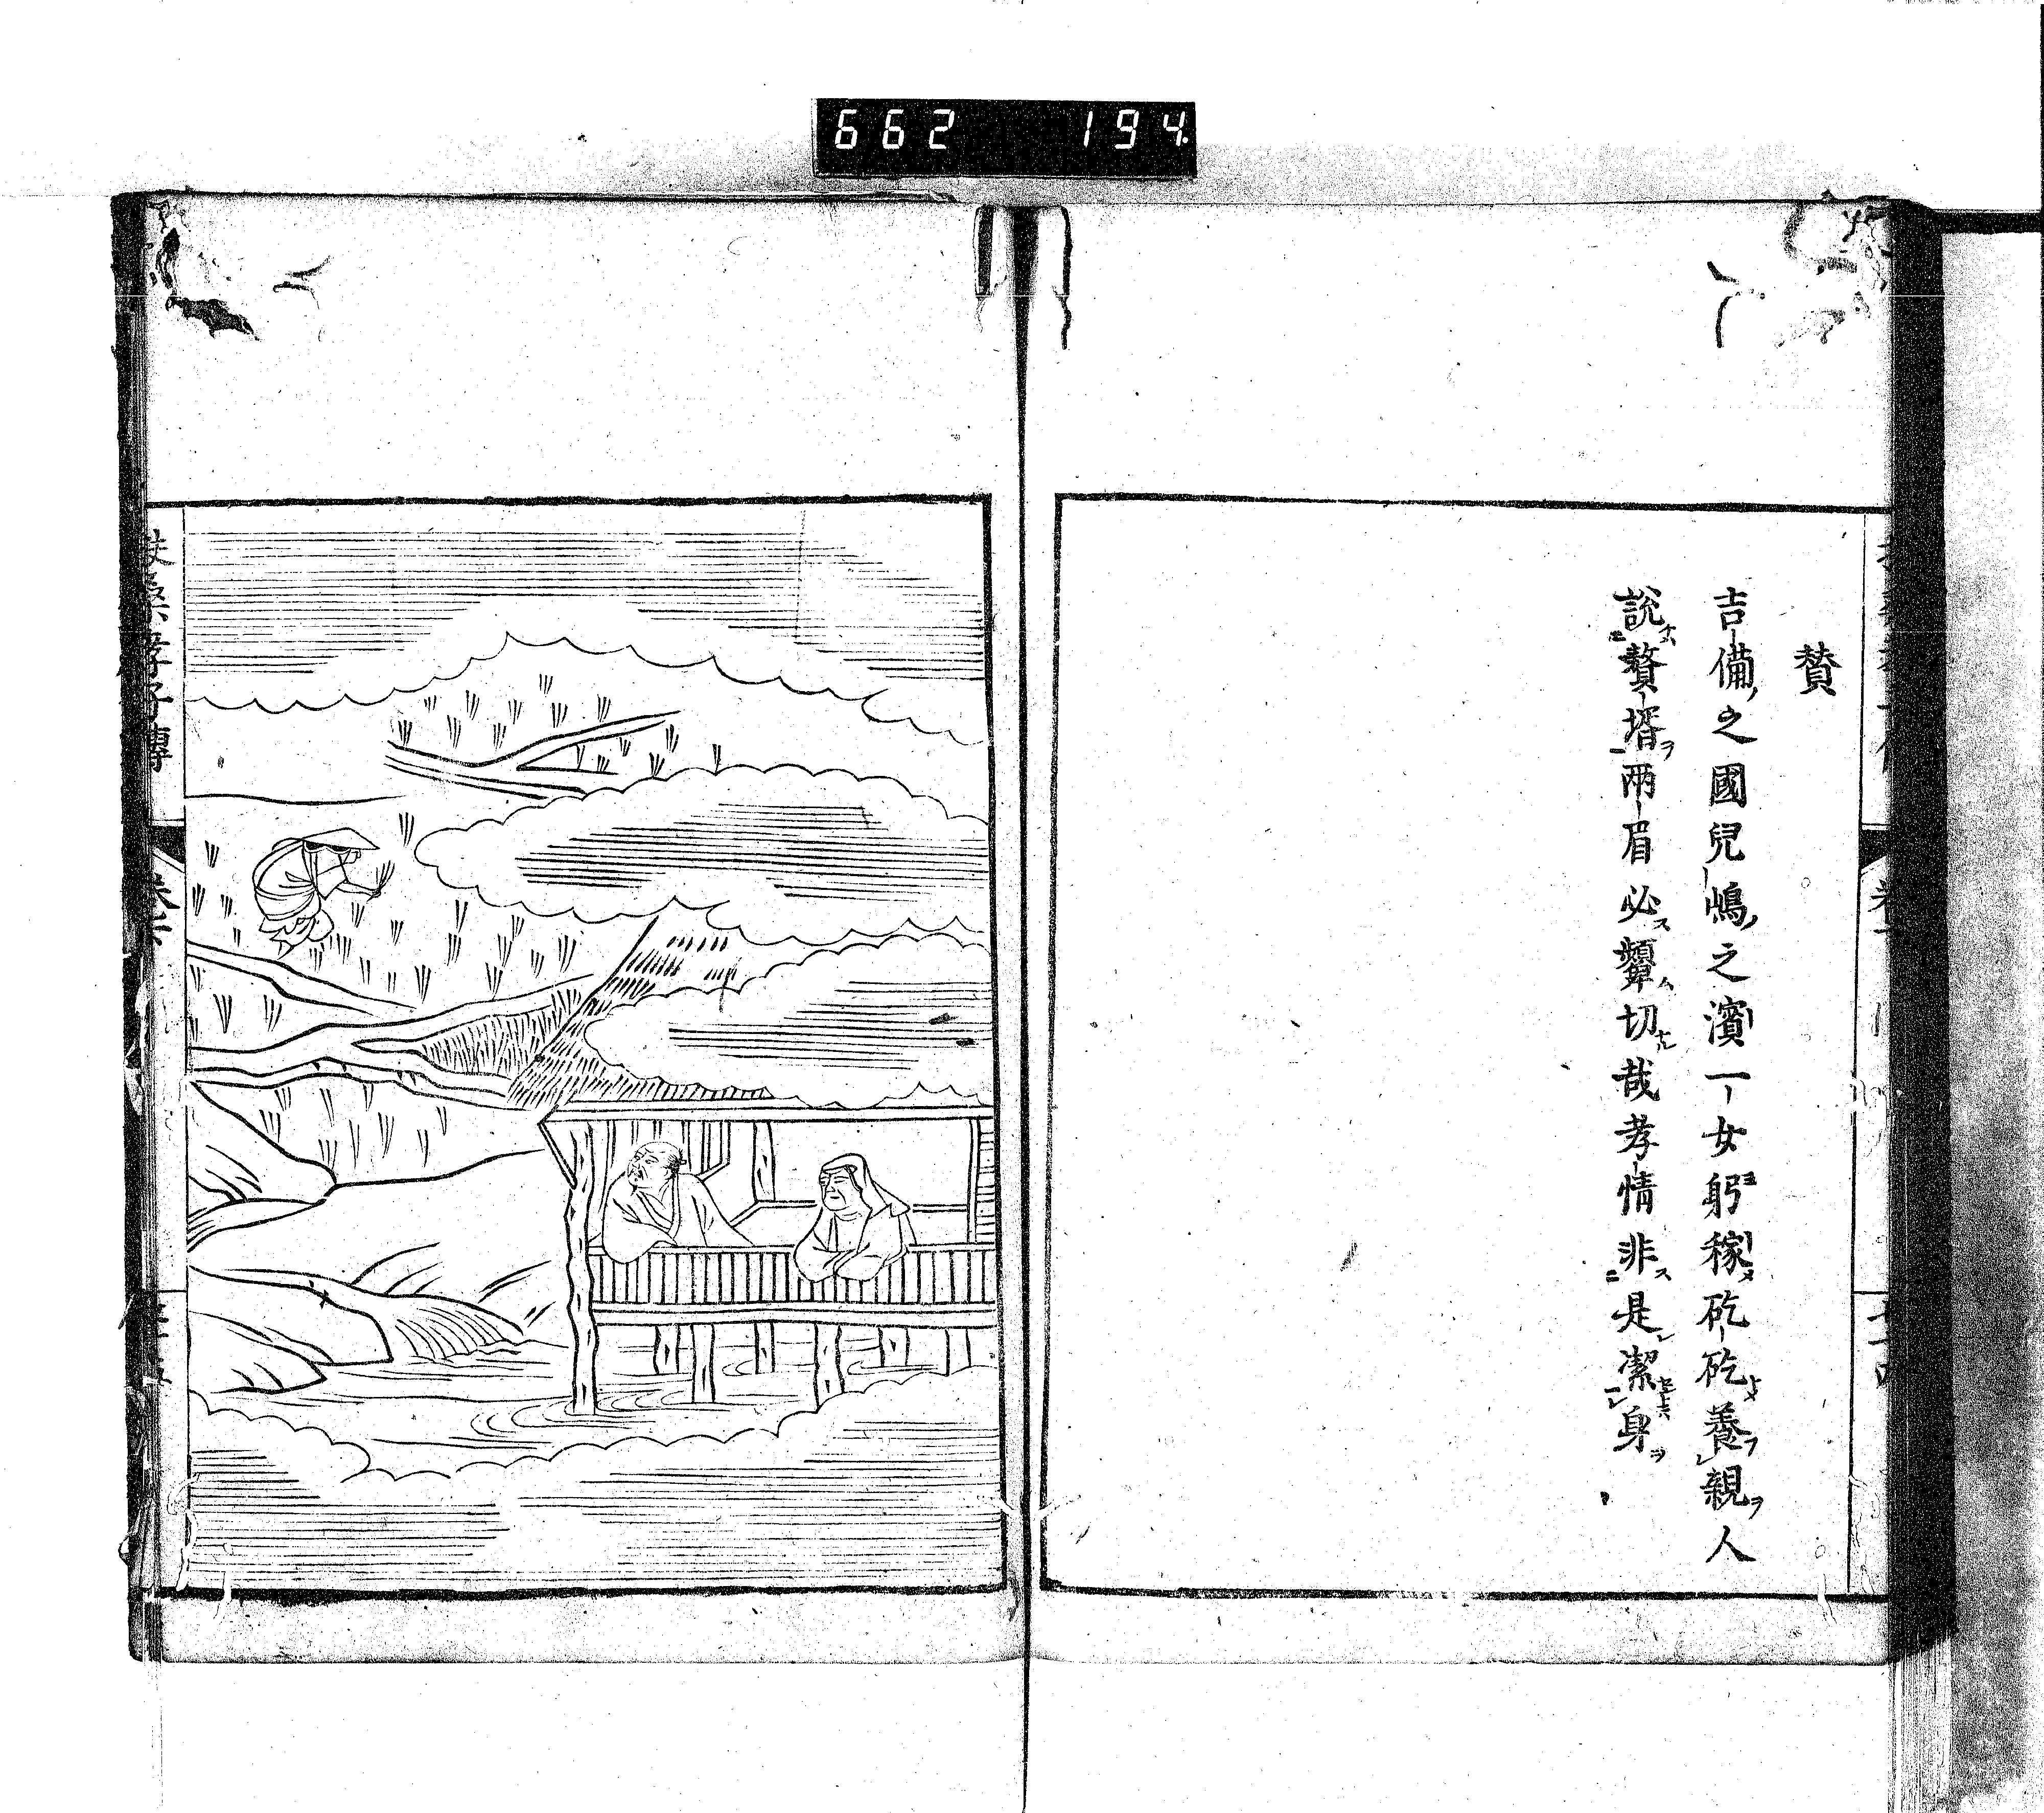 662 194
賛
吉備之國兒嶋之濱一女躬稼矻矻養親人
説贅壻兩眉必顰切哉孝情非是潔身
扶桑孝子傳